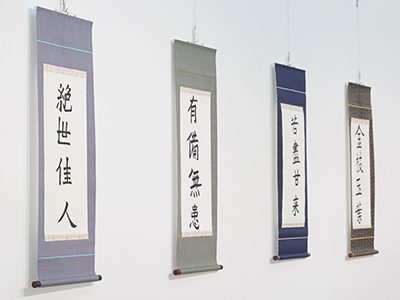 絕世佳人
有備無患
苦盡甘来
金枝玉葉